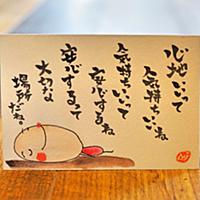 心地いいって
気持ちいいね
気持ちいいって
安心するね
安心するって
大切な
場所だね。